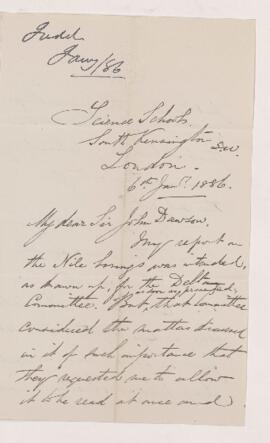 Judd
Jany/86
Science Schools,
South Kensington S.W.
London.
6th Jany. 1886.
My dear Sir John Dawson,
My report on
the Nile borings was intended,
as drawn up, for the Delta
Committee. But, that Committee
considered the matters discussed
in it of such importance that
they requested me to allow
it to be read at once and